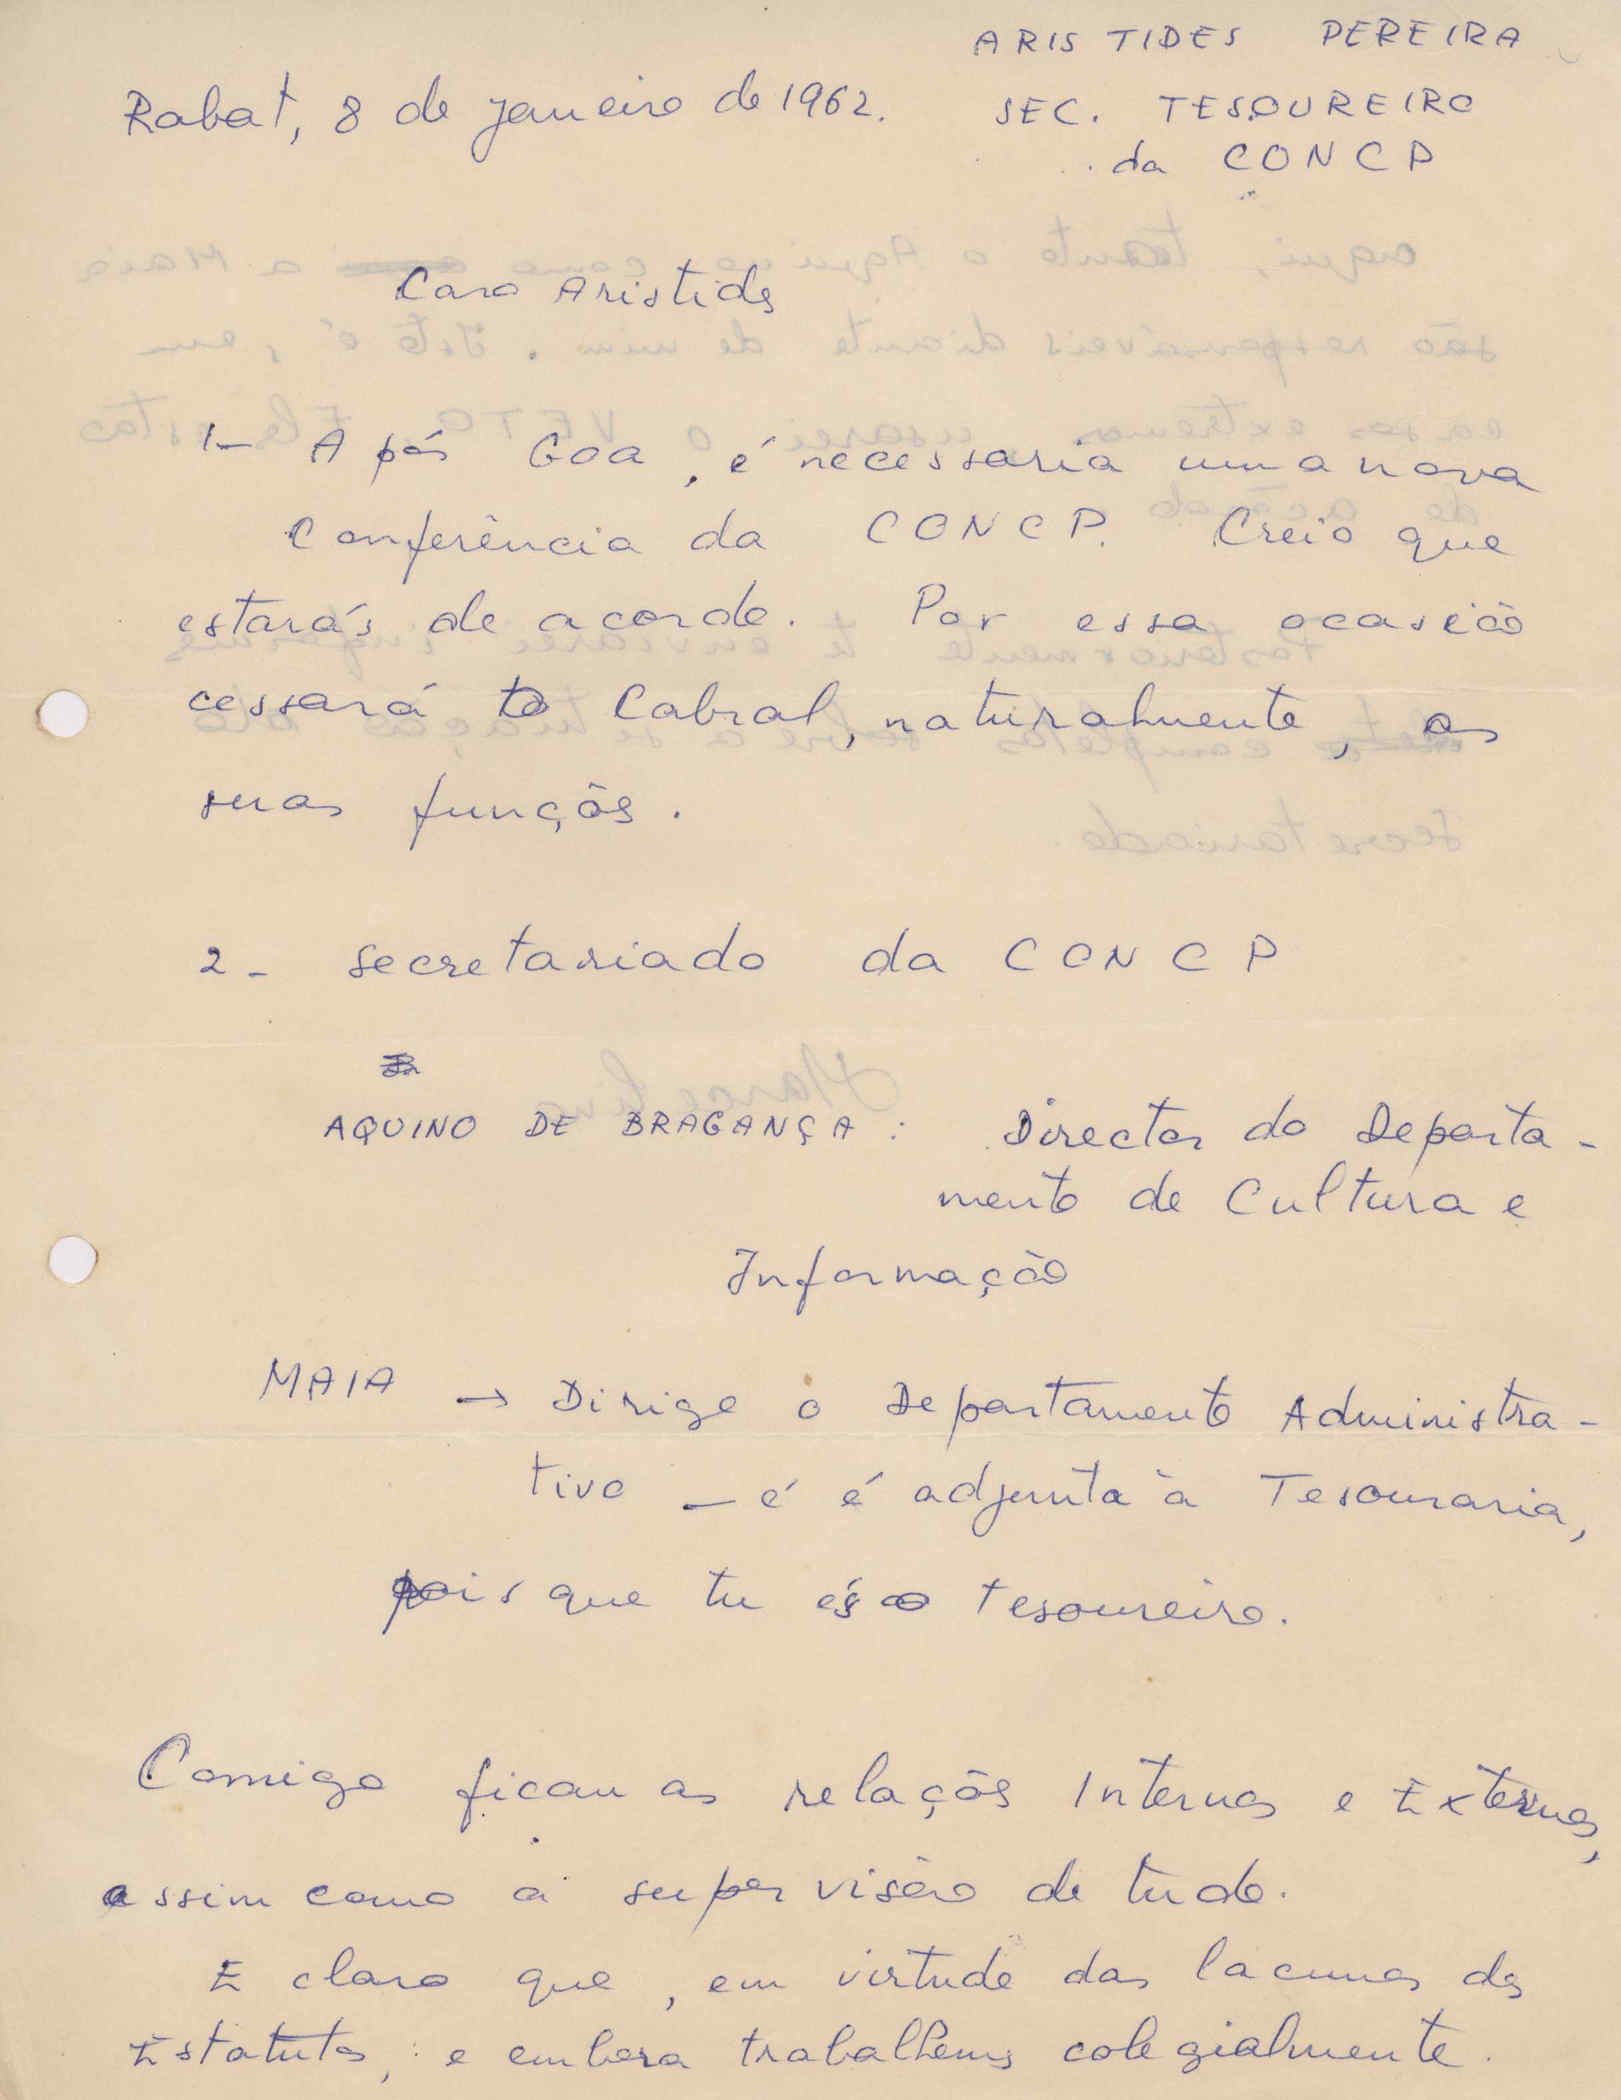 ARISTIDES PEREIRA
Rabat, 8 de janeiro de 1962.
SEC. TESOUREIRO
da CONCP
Caro Aristides
1- Após Goa, é necessaria uma nova
Conferência da CONCP. Creio que
estarás de acordo. Por essa ocasião
cessará to Cabral, naturalmente, as
suas funções.
2- Secretariado da CONCP
AQUINO DE BRAGANÇA: Director do Departa-
mento de Cultura e
Informação
MAIA → Dirige o Departamento Administra-
tivo — e é adjunta à Tesouraria,
pois que tu és o tesoureiro.
Comigo ficam as relações Internas e Externas,
assim como a supervisão de tudo.
E claro que, em virtude das lacunas dos
Estatutos, e embora trabalhemos colegialmente.